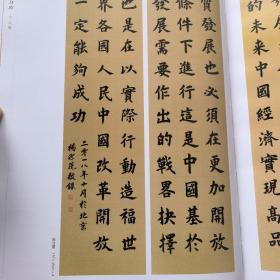 的未来中國經濟實現高品
質發展也必須在更加開放
條件下進行這是中國基於
發展需要作出的戰畧抉擇
也是在以實際行動造福世
界各國人民中國改革開放
一定能夠成功
二零一八年十月於北京
敬録